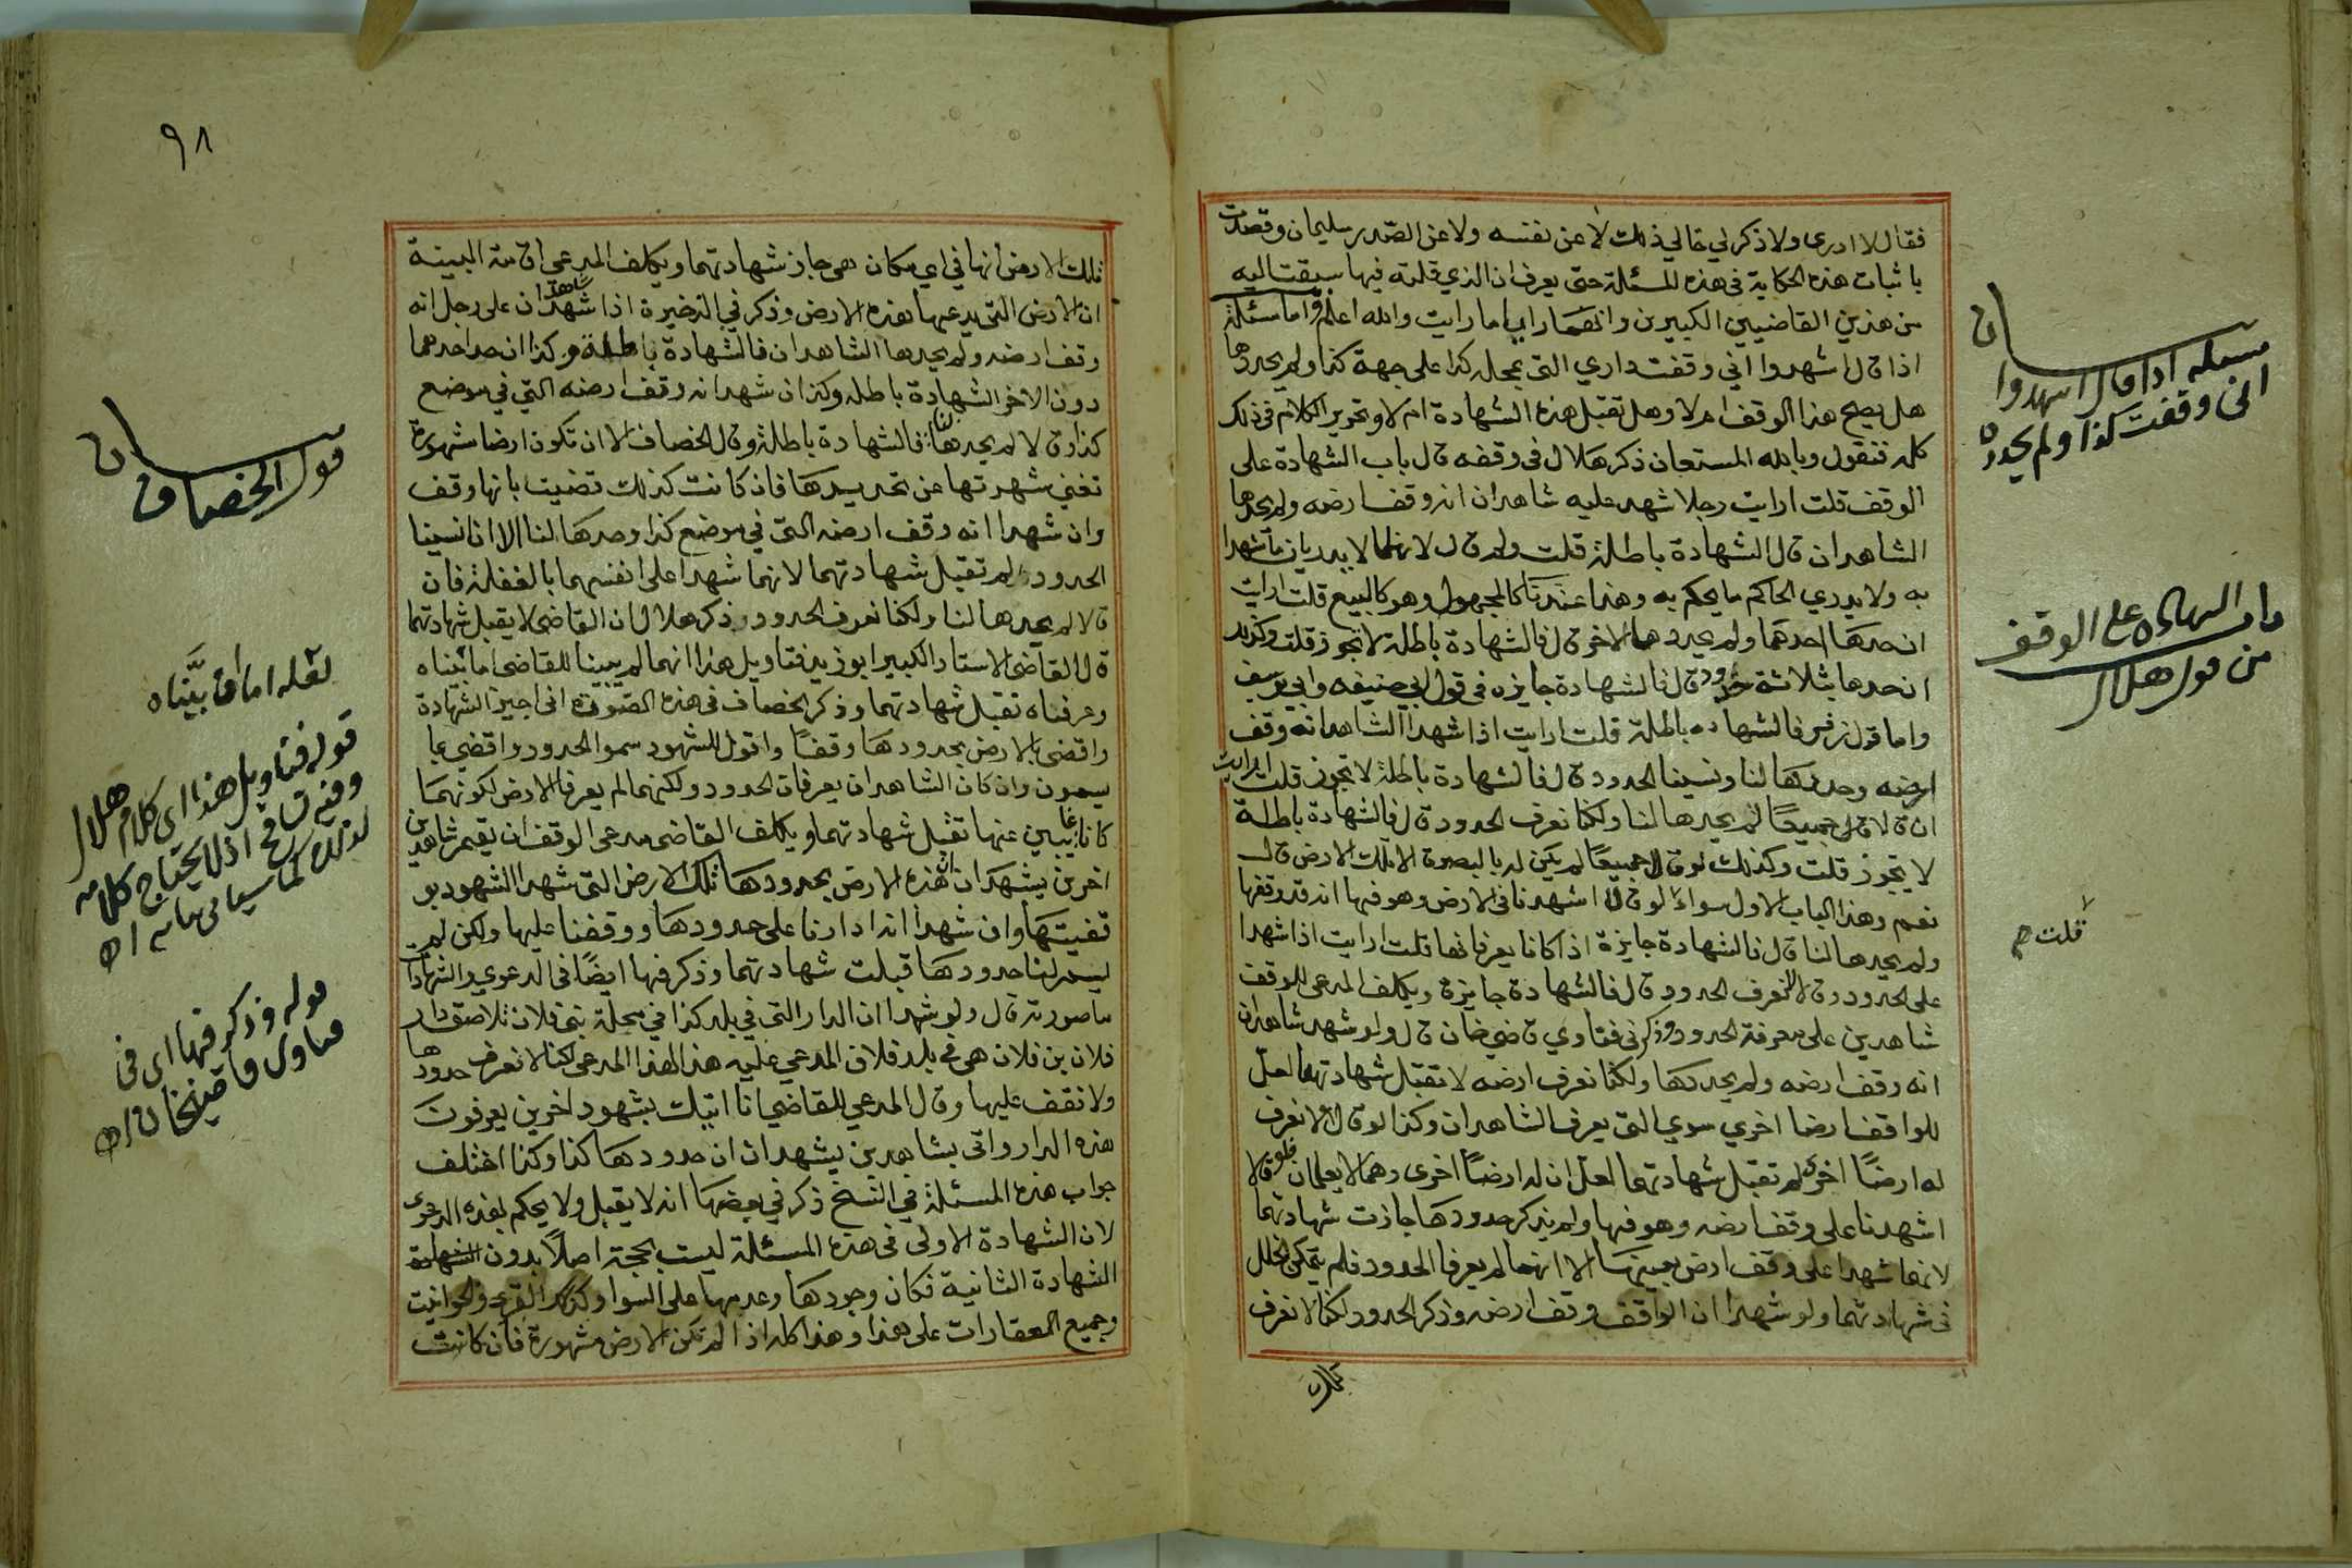 فقال لا ادرى ولا ذكر لي خالي ذلك لا عن نفسه ولا عن الصدر سليمان وقصدت
باثبات هذه الحكاية فى هذه المسئلة حتى يعرف ان الذي قلته فيها سبقت اليه
من هذين القاضيين الكبيرين وانهما رايا ما رايت والله اعلم واما مسئلة
اذا قال اشهدوا اني وقفت داري التى بمحلة كذا على جهة كذا ولم يحددها
هل يصح هذا الوقف ام لا وهل تقبل هذه الشهادة ام لا وتحرير الكلام فى ذلك
كله فنقول وبالله المستعان ذكر هلال فى وقفه قال باب الشهادة على
الوقف قلت ارايت رجلا شهد عليه شاهدان انه وقف ارضه ولم يحدها
الشاهدان قال الشهادة باطلة قلت ولم قال لانهما لا يدريان ما شهدا
به ولا يدري الحاكم ما يحكم به وهذا عندنا كالمجهول وهو كالبيع قلت ارايت
ان حدها احدهما ولم يحدها الاخر قال فالشهادة باطلة لا تجوز قلت وكذلك
ان حدها بثلاثة حدود قال فالشهادة جايزه فى قول ابي حنيفه وابي يوسف
واما قول زفر فالشهاده باطلة قلت ارايت اذا شهدا الشاهد انه وقف
ارضه وحددها لنا ونسينا الحدود قال فالشهادة باطلة لا تجوز قلت ارايت
ان قالا جميعًا لم يحدها لنا ولكنا نعرف الحدود قال فالشهادة باطلة
لا تجوز قلت وكذلك لو قال جميعًا لم يكن له بالبصرة الا تلك الارض قال
نعم وهذا الباب الاول سواء لو قال اشهدنا فى الارض وهو فيها انه قد وقفها
ولم يحدها لنا قال فالشهادة جايزة اذا كانا يعرفانها قلت ارايت اذا شهدا
على الحدود وقالا لا نعرف الحدود قال فالشهادة جايزة ويكلف المدعى للوقف
شاهدين على معرفة الحدود وذكر فى فتاوي قاضي خان قال ولو شهد شاهدان
انه وقف ارضه ولم يحددها ولكنا نعرف ارضه لا تقبل شهادتهما لعل
للواقف ارضا اخري سوي التى يعرف الشاهدان وكذا لو قالا لا نعرف
له ارضًا اخرى لم تقبل شهادتهما لعل ان له ارضًا اخرى وهما لا يعلمان فلو قالا
اشهدنا على وقف ارضه وهو فيها ولم يذكر حدودها جازت شهادتهما
لانهما شهدا على وقف ارض بعينها الا انهما لم يعرفا الحدود فلم يتمكن الخلل
فى شهادتهما ولو شهدا ان الواقف وقف ارضه وذكر الحدود لكنا لا نعرف
تلك
مسئله اذا قال اشهدوا
انى وقفت كذا ولم يحدده
باب الشهاده على الوقف
من قول هلال
قلت صح
٩٨
تلك الارض انها في اي مكان هى جاز شهادتهما ويكلف المدعي اقامة البينة
ان الارض التي يدعيها هذه الارض وذكر في الذخيرة اذا شهد شاهدان على رجل انه
وقف ارضه ولم يحدها الشاهدان فالشهادة باطلة وكذا ان حد احدهما
دون الاخر الشهادة باطله وكذا ان شهد انه وقف ارضه التي في موضع
كذا وقالا لم يحدها لنا فالشهادة باطلة وقال الخصاف الا ان تكون ارضا مشهورة
تغني شهرتها عن تحديدها فان كانت كذلك قضيت بانها وقف
وان شهدا انه وقف ارضه التي في موضع كذا وحدها لنا الا انا نسينا
الحدود لم تقبل شهادتهما لانهما شهدا على انفسهما بالغفلة فان
قالا لم يحدها لنا ولكنا نعرف الحدود وذكر هلال ان القاضى لا يقبل شهادتهما
قال القاضى الاستاد الكبير ابو زيد فتاويل هذا انهما لم يبينا للقاضى اما بيناه
وعرفناه تقبل شهادتهما وذكر الخصاف فى هذه الصورة انى اجيز الشهادة
واقضى بالارض بحدودها وقفًا واقول للشهود سموا الحدود واقضي بما
يسمون وان كان الشاهدان يعرفان الحدود ولكنهما لم يعرفا الارض لكونهما
كانا غايبين عنها تقبل شهادتهما ويكلف القاضى مدعى الوقف ان يقيم شاهدين
اخرين يشهدان ان هذه الارض بحدودها تلك الارض التى شهد الشهود بو
قفيتها وان شهدا انه ادارنا على حدودها ووقفنا عليها ولكن لم
يسم لنا حدودها قبلت شهادتهما وذكر فيها ايضًا فى الدعوي والشهادات
ما صورته قال ولو شهدا ان الدار التى في بلد كذا في محلة بني فلان تلاصق دار
فلان بن فلان هى في يد فلان المدعي عليه هذا لهذا المدعى لكنا لا نعرف حدودها
ولا نقف عليها وقال المدعي للقاضي انا اتيك بشهود اخرين يعرفون
هذه الدار واتى بشاهدين يشهدان ان حدودها كذا وكذا اختلف
جواب هذه المسئلة في النسخ ذكر في بعضها انه لا يقبل ولا يحكم بهذه الدعوى
لان الشهادة الاولى فى هذه المسئلة ليست بحجة اصلًا بدون الشهادة
الشهادة الثانية فكان وجودها وعدمها على السوا وكذلك القرى والحوانيت
وجميع العقارات على هذا وهذا كله اذا لم تكن الارض مشهورة فان كانت
قول الخصاف
لعله اما ان بيناه
قوله فتاويل هذا اى كلام هلال
لذلك كما سياتى
قوله وذكر فيها اى فى
فتاوى قاضيخان اه